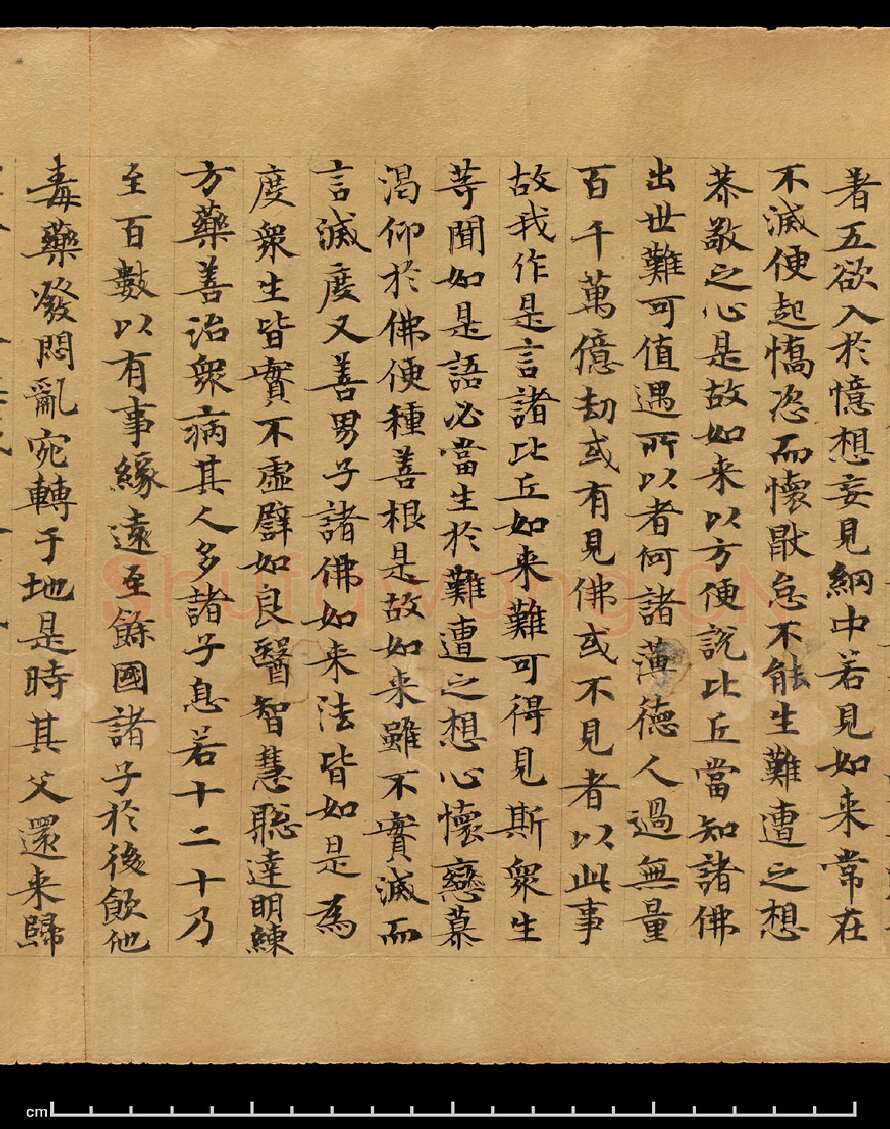 著五欲入於憶想妄見網中若見如来常在
不滅便起憍恣而懷猒怠不能生難遭之想
恭敬之心是故如来以方便說比丘當知諸佛
出世難可值遇所以者何諸薄德人過無量
百千萬億劫或有見佛或不見者以此事
故我作是言諸比丘如来難可得見斯衆生
等聞如是語必當生於難遭之想心懷戀慕
渴仰於佛便種善根是故如来雖不實滅而
言滅度又善男子諸佛如来法皆如是為
度衆生皆實不虛譬如良醫智慧聡達明練
方藥善治衆病其人多諸子息若十二十乃
至百數以有事緣遠至餘國諸子於後飲他
毒藥發悶亂宛轉于地是時其父還来歸
Shufawang.CN
cm